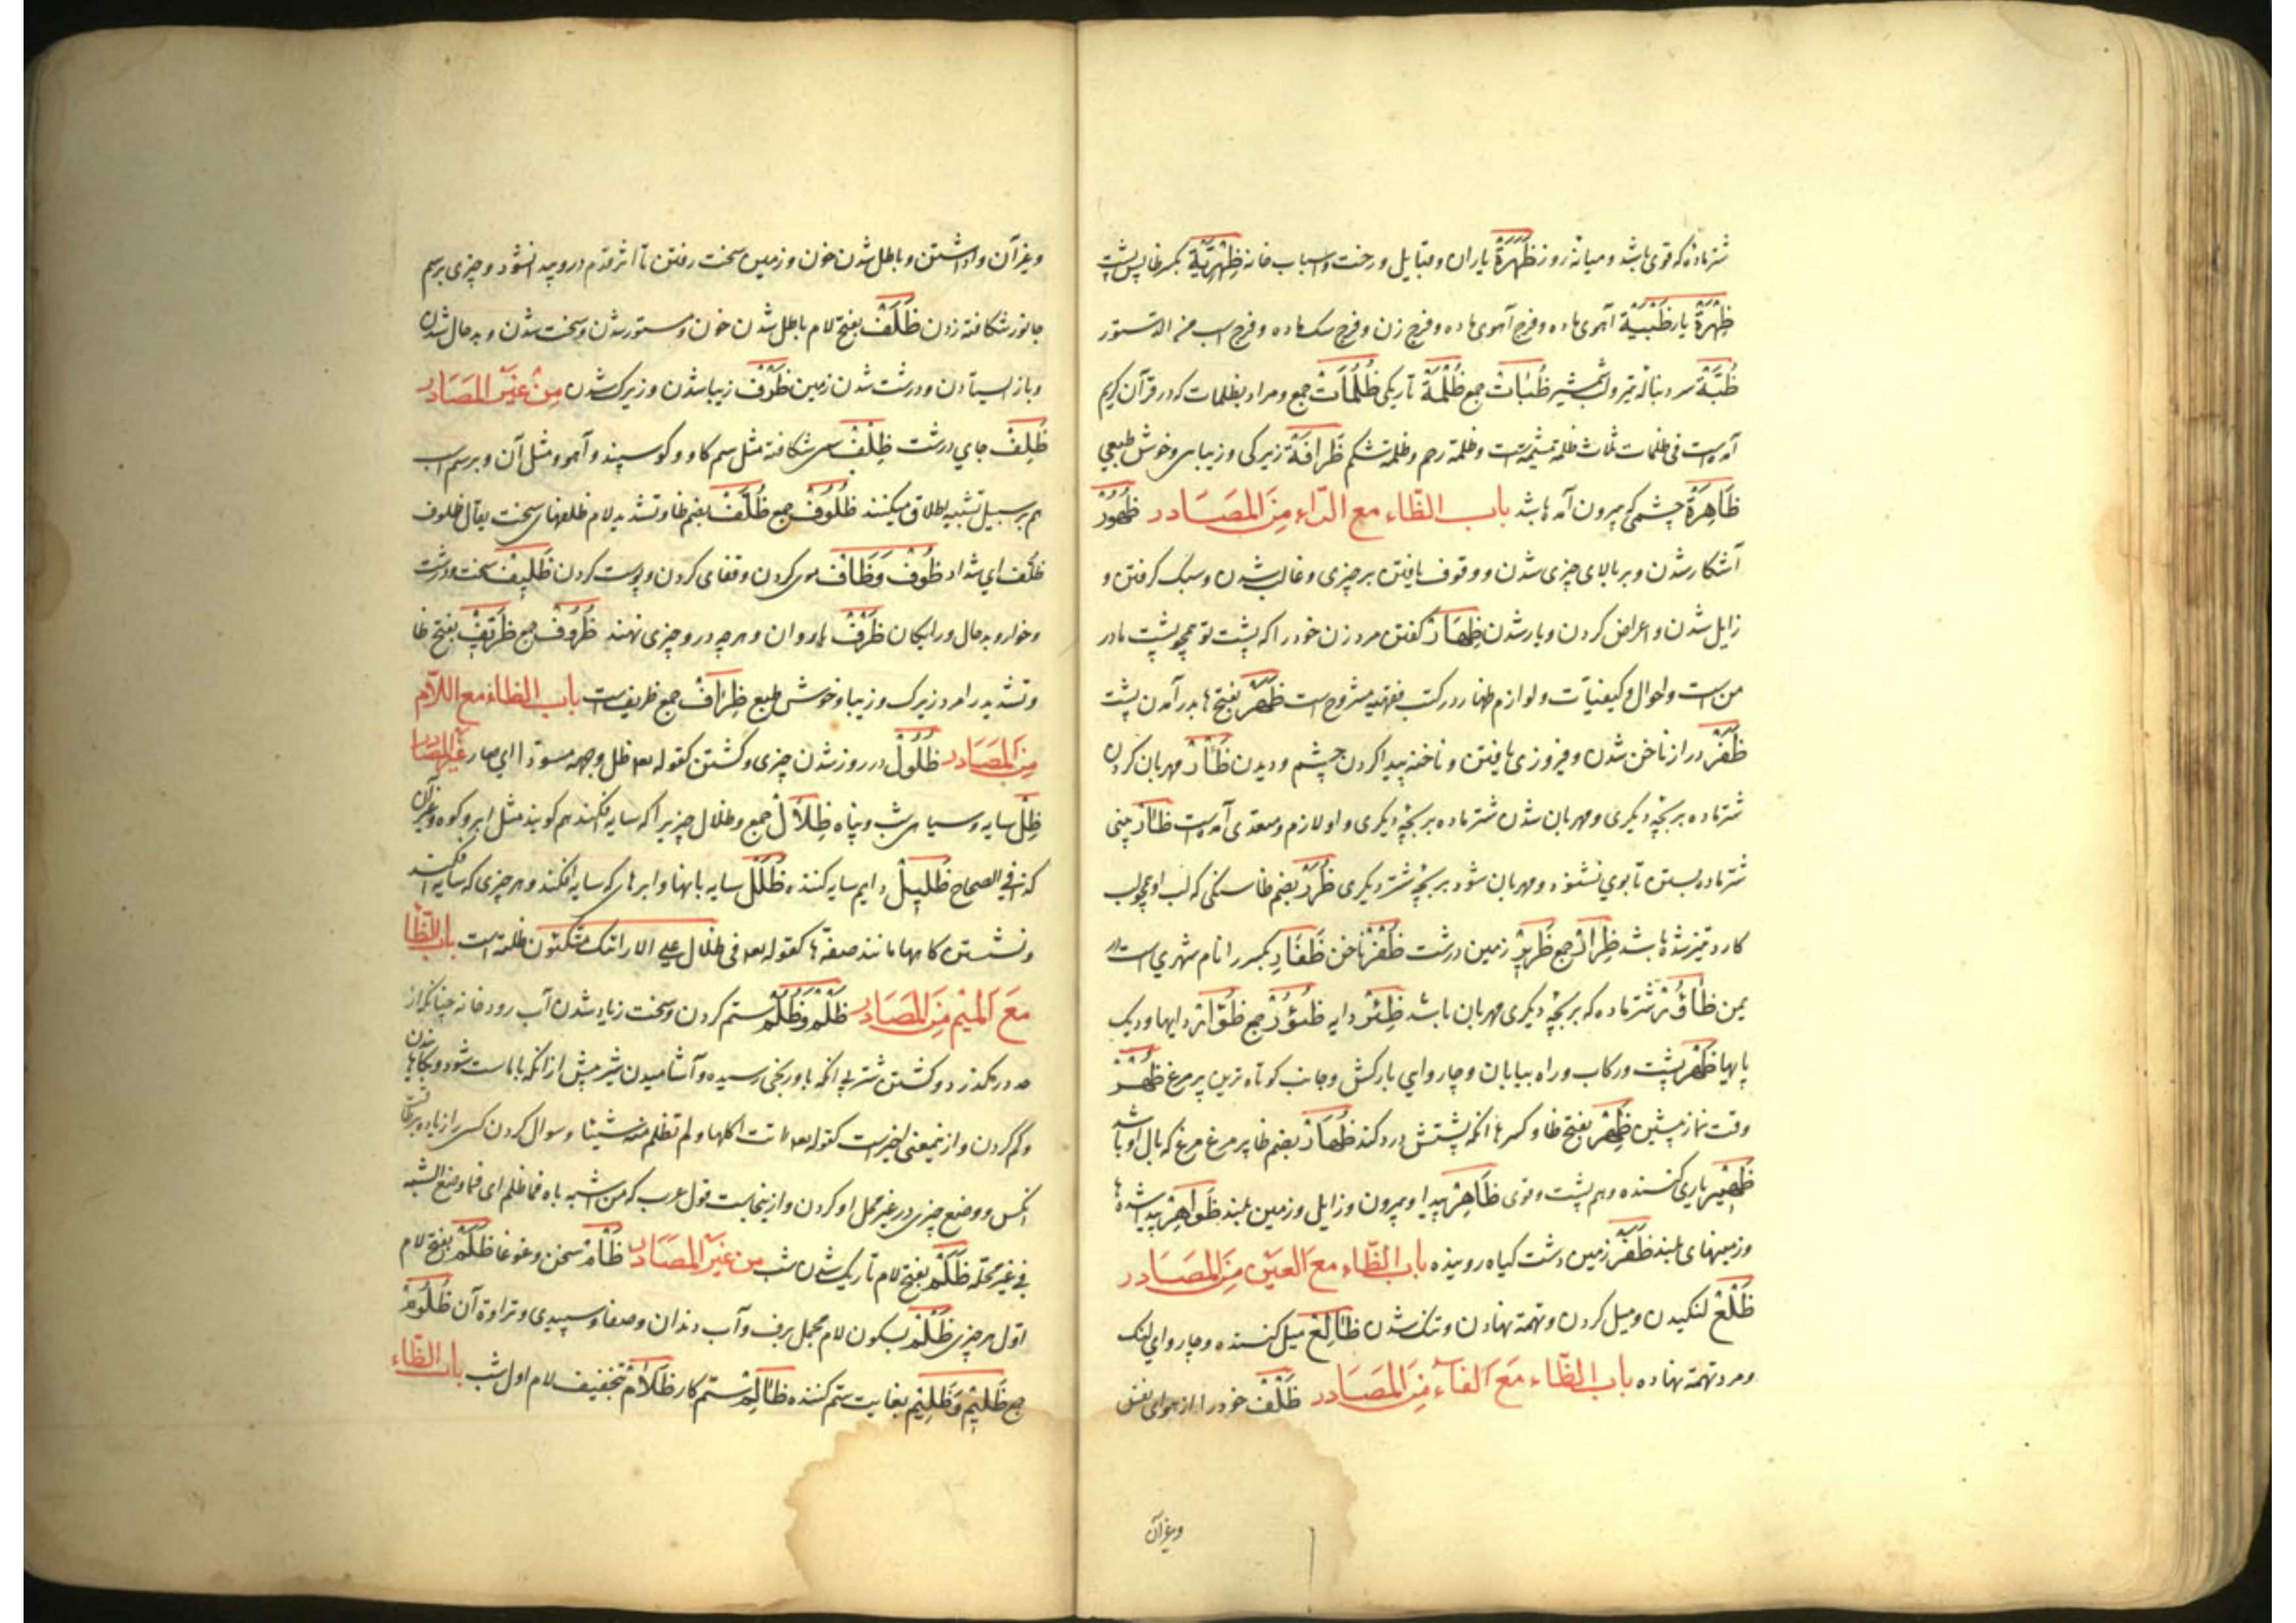 شتر ماده که قوی باشد و میانه روز ظَهَرَةٌ یاران و قبایل و رخت و اسباب خانه ظِهْرِيَّةٌ بکسر ظا پس پشت
ظِهْرَةٌ یار ظَبْيَةٌ آهوی ماده و فرج آهوی ماده و فرج زن و فرج سک ماده و فرج اسب
ظُبَةٌ سر دنباله تیر و لب شمشیر ظُبَاتٌ جمع ظُلْمَةٌ تاریکی ظُلُمَاتٌ جمع و مراد بظلمات که در قرآن کریم
آمده است فی ظلمات ثلاث ظلمة مشیمه است و ظلمة رحم و ظلمة شکم ظَرَافَةٌ زیرکی و زیبایی و خوش طبعی
ظَاهِرَةٌ چشمی که بیرون آمده باشد باب الظّاء مع الرّاء مِنَ المَصَادر ظُهُورٌ
آشکار شدن و بر بالای چیزی شدن و وقوف یافتن بر چیزی و غالب شدن و سبک گرفتن و
زایل شدن و اعراض کردن و یار شدن ظِهَارٌ گفتن مرد زن خود را که پشت تو همچو پشت مادر
من است و احوال و کیفیات و لوازم ظهار در کتب فقهیه مشروح است ظَهَرٌ بفتح ها بدر آمدن پشت
ظَفَرٌ دراز ناخن شدن و فیروزی یافتن و ناخنه پیدا کردن چشم و دیدن ظَأْرٌ مهربان کردن
شتر ماده بر بچه دیگری و مهربان شدن شتر ماده بر بچه دیگری و او لازم و متعدی آمده است ظئار بینی
شتر ماده بستن تا بوی نشنود و مهربان شود بر بچه شتر دیگری ظُرَرٌ بضم ظا سنگی که لب او چون لب
کارد تیز شده باشد ظِرَارٌ جمع ظَرِيرٌ زمین درشت ظُفْرٌ ناخن ظَفَارِ بکسر را نام شهری است در
یمن ظَؤُرٌ شتر ماده که بر بچه دیگری مهربان باشد ظِئْرٌ دایه ظُئُورٌ جمع ظُؤَارٌ دایها و دیک
پایها ظَهْرٌ پشت و رکاب و راه بیابان و چاروای بارکش و جانب کوتاه ترین پر مرغ ظُهْرٌ
وقت نماز پیشین ظَهِرٌ بفتح ظا و کسر ها آنکه پشتش درد کند ظُهَارٌ بضم ظا پر مرغ مرغ که بال او باشد
ظَهِيرٌ یاری کننده و هم پشت و قوی ظَاهِرٌ پیدا و بیرون و زایل و زمین بلند ظَوَاهِرٌ پیدا شده ها
و زمینهای بلند ظَفَرٌ زمین دشت گیاه روینده باب الظّاء مَعَ العَيْن مِنَ المَصَادر
ظَلْعٌ لنکیدن و میل کردن و تهمة نهادن و تنک شدن ظَالِعٌ میل کننده و چاروای لنک
و مرد تهمة نهاده باب الظّاء مَعَ الفاء مِنَ المَصَادر ظَلْفٌ خود را از هوای نفس
وغیرآن
وغیر آن واداشتن و باطل شدن خون و زمین سخت رفتن تا اثر قدم درو پیدا نشود و چیزی بر سم
جانور شکافته زدن ظَلَفٌ بفتح لام باطل شدن خون و ستور شدن و سخت شدن و بد حال شدن
و باز ایستادن و درشت شدن زمین ظَرْفٌ زیبا شدن و زیرک شدن مِنْ غَيْر المَصَادر
ظَلِفٌ جای درشت ظِلْفٌ سم شکافته مثل سم کاو و کوسپند و آهو و مثل آن و بر سم اسب
هم بر سبیل تشبیه اطلاق میکنند ظُلُوفٌ جمع ظُلَّفٌ بضم ظا و تشدید لام ظلفهای سخت یقال ظلوف
ظلّف ای شداد ظُوفٌ وَظَافٌ موی گردن و قفای گردن و پوست گردن ظَلِيفٌ سخت و درشت
و خوار و بد حال و رایکان ظَرْفٌ باردان و هرچه درو چیزی نهند ظُرُوفٌ جمع ظَرِيفٌ بفتح ظا
و تشدید را مرد زیرک و زیبا و خوش طبع ظِرَافٌ جمع ظریف است باب الظاء مع اللام
مِنَ المَصَادر ظُلُولٌ در روز شدن چیزی و گشتن کقوله تعالی ظل وجهه مسودا ای صار غير المصادر
ظِلٌّ سایه و سیاهی شب و پناه ظِلَالٌ جمع و ظلال چیزیرا که سایه افکند هم گویند مثل ابر و کوه و غیر آن
کذا فی الصحاح ظَلِيلٌ دایم سایه کننده ظُلَلٌ سایه بانها و ابرهای که سایه افکند و هر چیزی که سایه افکند
و نشستن کاهها مانند صفّه ها کقوله تعالی فی ظلال علی الارائک متکئون ظلة است باب الظّا
مَعَ المِيْم مِنَ المَصَادر ظَلْمٌ وَظُلْمٌ ستم کردن و سخت زیاد شدن آب رودخانه چنانکه از
حد در گذرد و کشتن شتر بی آنکه باو رنجی رسیده و آشامیدن شیر پیش از آنکه ماست شود
و کم کردن و از نیمعنی اخیر است کقوله تعالی آتت اکلها و لم تظلم منه شیئا و سوال کردن کسی را زیاده بر طاقت
آنکس و وضع چیزی در غیر محل او کردن و از اینجاست قول عرب که من اشبه اباه فما ظلم ای فما وضع الشبه
فی غیر محله ظَلَمٌ بفتح لام تاریک شدن شب من غَيْر المَصَادر ظَأْمٌ سخن و غوغا ظَلَمٌ بفتح لام
اوّل هر چیزی ظَلْمٌ بسکون لام برف و آب دندان و صفا و سپیدی و تراوة آن ظُلُومٌ
جمع ظَلِيمٌ وَظِلِّيمٌ بغایت ستم کننده ظَالِمٌ ستم کار ظَلَامٌ بتخفیف لام اول شب باب الظّاء